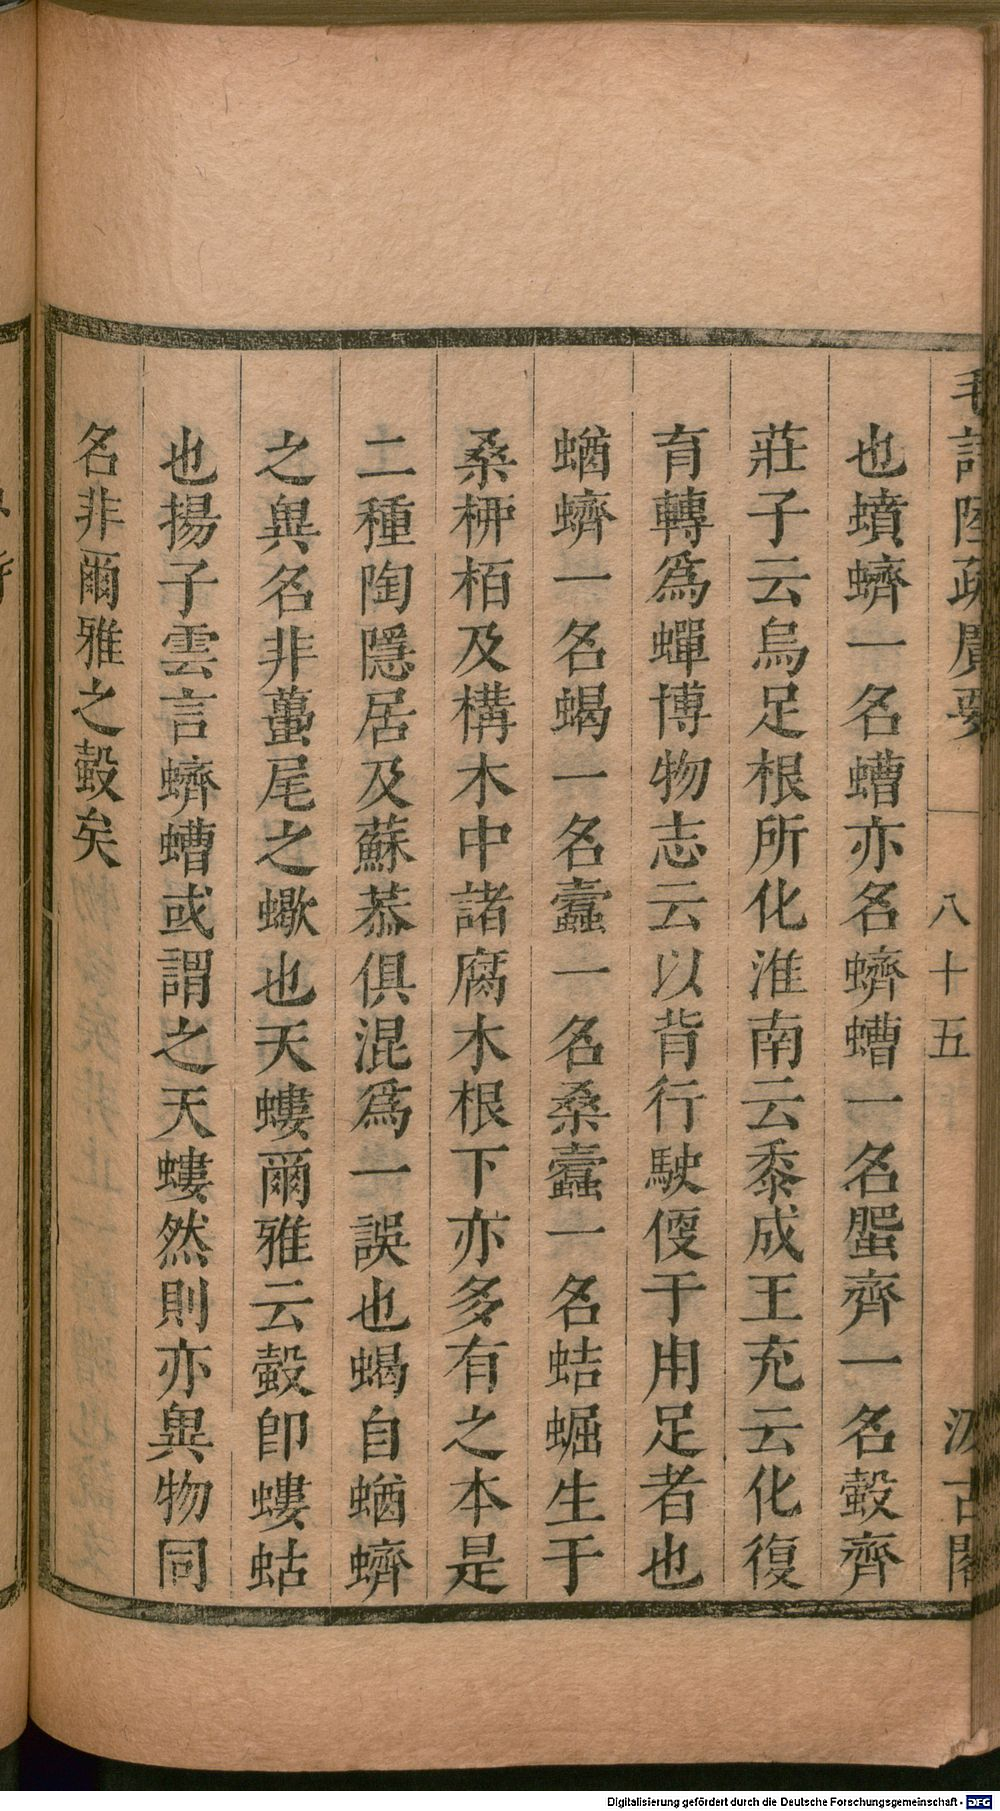 毛詩陸疏廣要
八十五
汲古閣
也蟦蠐一名螬亦名蠐螬一名𧓉齊一名𧎅齊
莊子云烏足根所化淮南云黍成王充云化復
育轉爲蟬博物志云以背行駛偄于用足者也
蝤蠐一名蝎一名蠹一名桑蠹一名蛣蜛生于
桑柳栢及構木中諸腐木根下亦多有之本是
二種陶隱居及蘇恭俱混爲一誤也蝎自蝤蠐
之異名非蠆尾之蠍也天螻爾雅云螜即螻蛄
也揚子雲言蠐螬或謂之天螻然則亦異物同
名非爾雅之螜矣
Digitalisierung gefördert durch die Deutsche Forschungsgemeinschaft - DFG